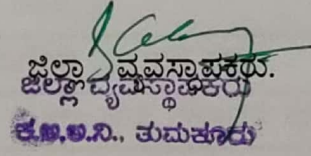 ಜಿಲ್ಲಾ ವ್ಯವಸ್ಥಾಪಕರು.
ಜಿಲ್ಲಾ ವ್ಯವಸ್ಥಾಪಕರು
ಕ.ಅ.ಅ.ನಿ., ತುಮಕೂರು